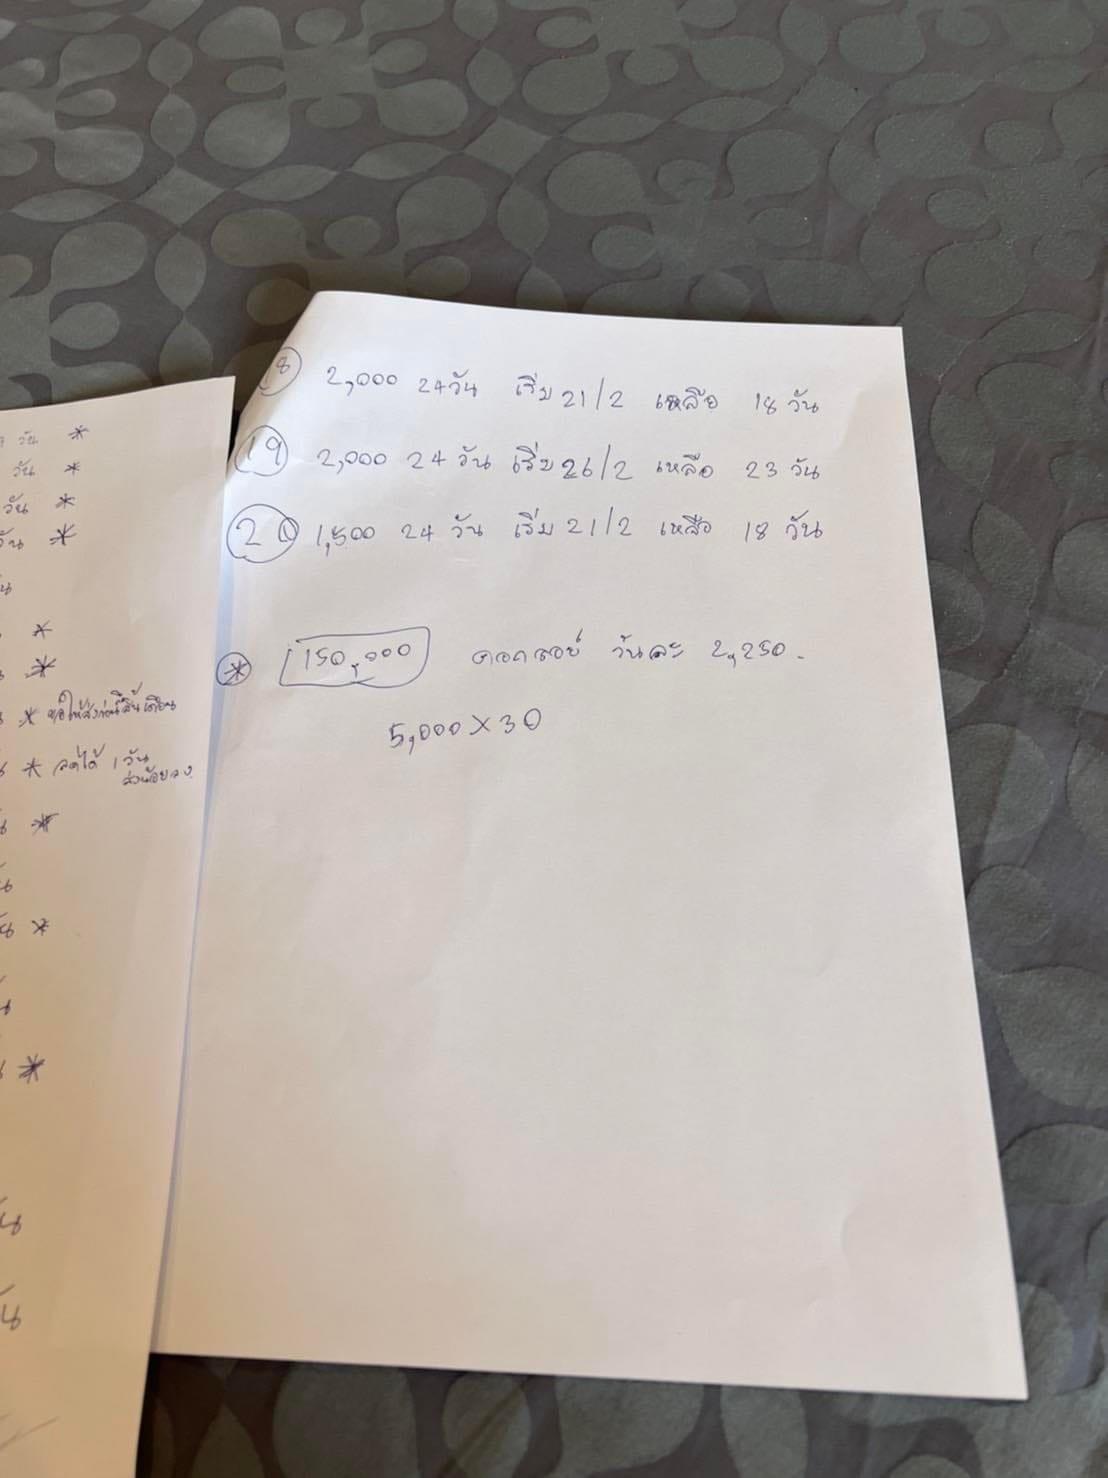 วัน *
วัน *
วัน *
วัน *
*
*
* ขอให้ส่งก่อนสิ้นเดือน
* ลดได้ 1 วัน
ส่งน้อยลง
*
*
*
18 2,000 24 วัน เริ่ม 21/2 เหลือ 18 วัน
19 2,000 24 วัน เริ่ม 26/2 เหลือ 23 วัน
20 1,500 24 วัน เริ่ม 21/2 เหลือ 18 วัน
* 150,000 ดอกลอย วันละ 2,250.
5,000 x 30